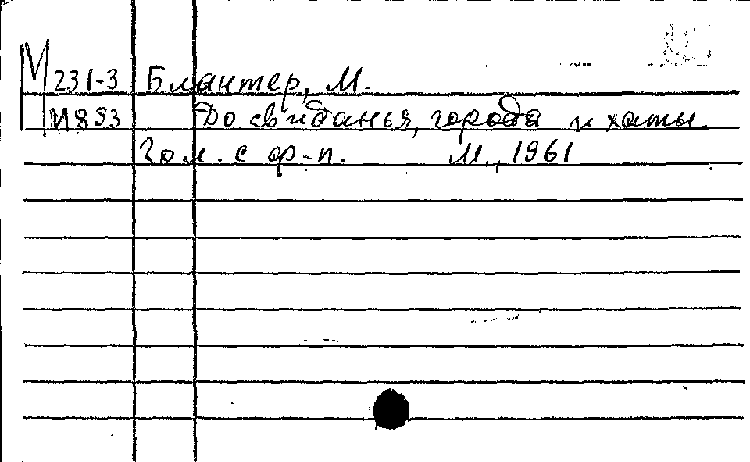 М 231-3 Блантер, М.
И893 До свиданья, города и хаты
Гол. с ф-п. М., 1961